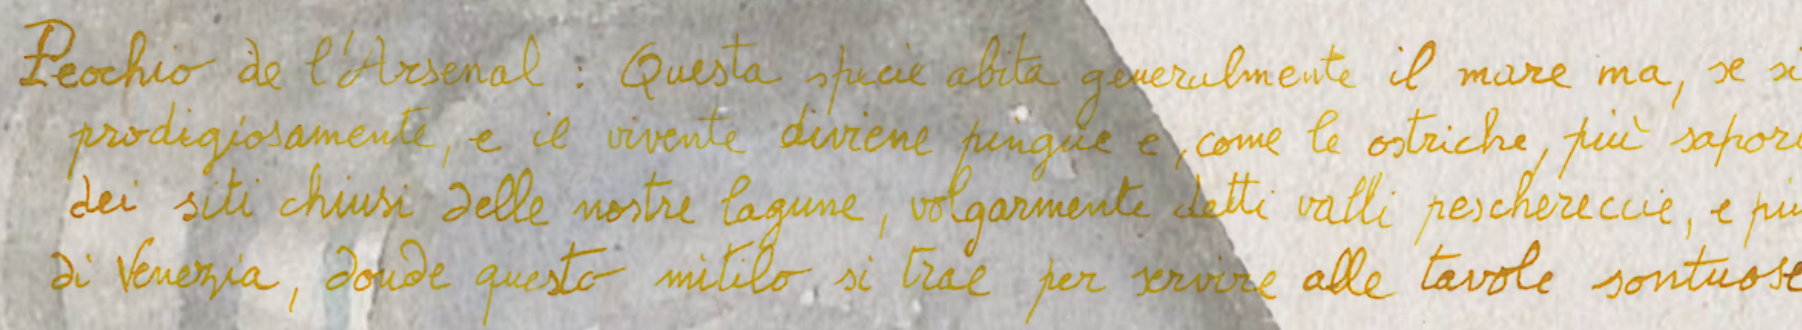 Peochio de l'Arsenal : Questa specie abita generalmente il mare ma, se si
prodigiosamente, e il vivente diviene pingue e, come le ostriche, più sapori
dei siti chiusi delle nostre lagune, volgarmente detti valli peschereccie, e più
di Venezia, donde questo mitilo si trae per servire alle tavole sontuose